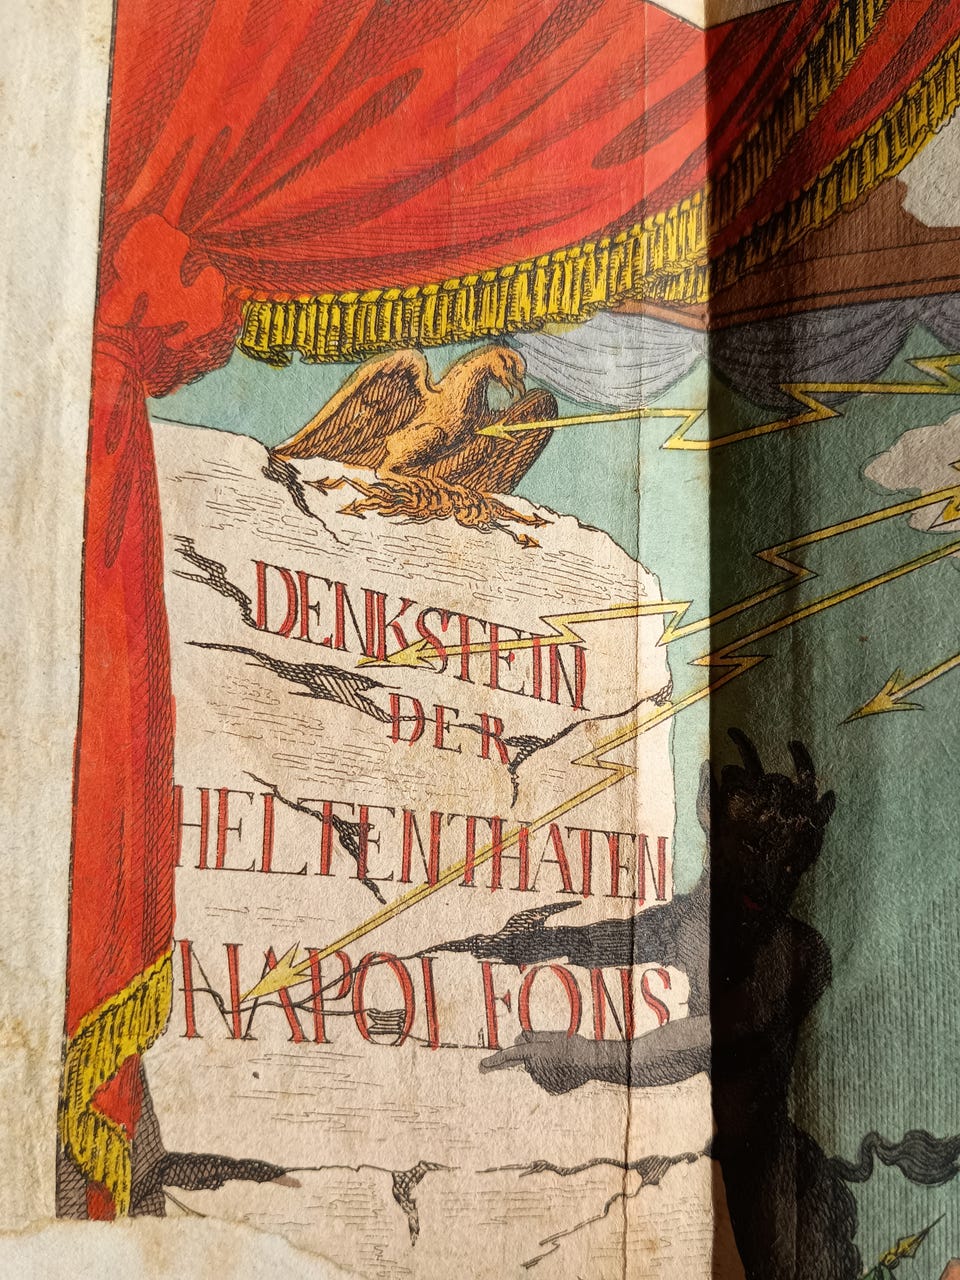 DENKSTEIN
DER
HELTENTHATEN
NAPOLEONS